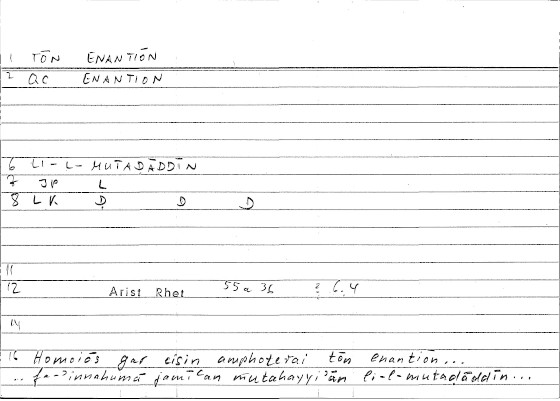 1 TŌN ENANTIŌN
2 QC ENANTION
6 LI-L-MUTAḌĀDDĪN
7 JP L
8 LK Ḍ D D
11
12 Arist Rhet 55a 36 : 6.4
14
16 Homoiōs gar eisin amphoterai tōn enantiōn...
.. fa-ʾinnahumā jamīʿan mutahayyiʾān li-l-mutaḍāddīn...